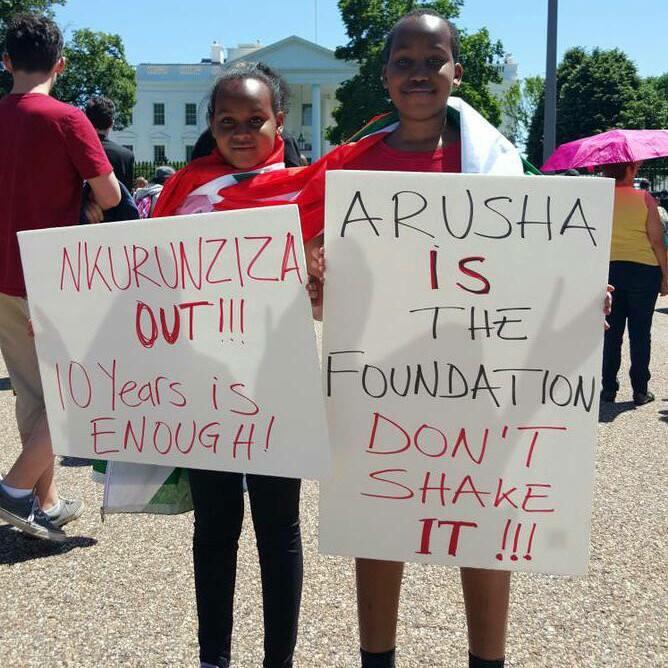 NKURUNZIZA
OUT!!!
10 Years is
ENOUGH!
ARUSHA
IS
THE
FOUNDATION
DON'T
SHAKE
IT !!!